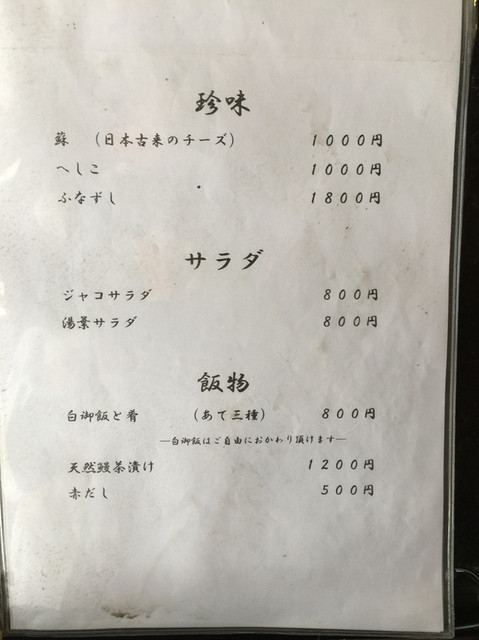 珍味
蘇 （日本古来のチーズ） 1000円
へしこ 1000円
ふなずし 1800円
サラダ
ジャコサラダ 800円
湯葉サラダ 800円
飯物
白御飯と肴 （あて三種） 800円
―白御飯はご自由におかわり頂けます―
天然鰻茶漬け 1200円
赤だし 500円